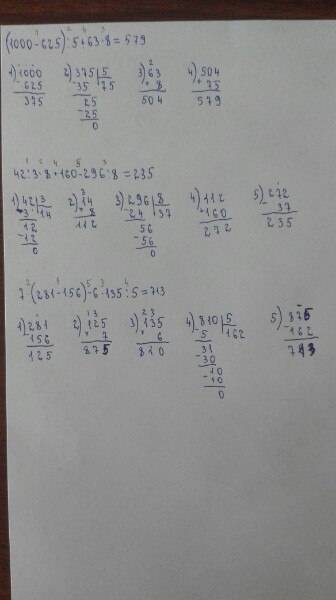 (1000-625):5+63·8=579
1) 1000 2) 375|5 3) 63 4) 504
-625 -35 75 ×8 +75
375 25 504 579
-25
0
42:3·8+160-296:8=235
1) 42|3 2) 14 3) 296|8 4) 112 5) 272
-3 14 ×8 -24 37 +160 -37
12 112 56 272 235
-12 -56
0 0
7·(281-156)-6·135:5=713
1) 281 2) 125 3) 135 4) 810|5 5) 875
-156 ×7 ×6 -5 162 -162
125 875 810 31 713
-30
10
-10
0